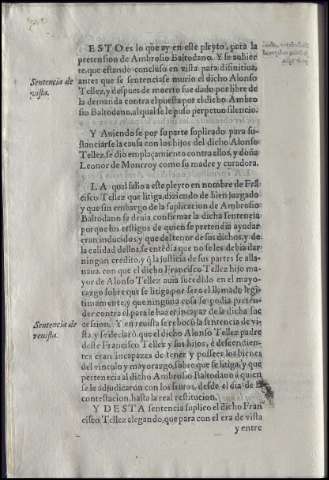 ESTO es lo que ay en este pleyto, para la
pretension de Ambrosio Baltodano. Y se advier
te, que estando concluso en vista para difinitiva,
antes que se sentenciase murio el dicho Alonso
Sentencia de
vista.
Tellez, y despues de muerto fue dado por libre de
la demanda contra el puesta por el dicho Ambro
sio Baltodano, al qual se le puso perpetuo silencio.
Y Aviendose por su parte suplicado, para su-
stanciarse la causa con los hijos del dicho Alonso
Tellez, se dio emplaçamiento contra ellos, y doña
Leonor de Monrroy como su madre y curadora.
LA qual salio a este pleyto en nombre de Fran
cisco Tellez que litiga, diziendo de bien juzgado
y que sin embargo de la suplicacion de Ambrosio
Baltodano se devia confirmar la dicha sentencia
porque los testigos de quien se pretendia ayudar
eran inducidos, y que del tenor de sus dichos, y de
la calidad dellos, se entēdia que no se les devia dar
ningun credito, y q̃ la justicia de sus partes se alla-
nava con que el dicho Francisco Tellez hijo ma
yor de Alonso Tellez avia sucedido en el mayo-
razgo sobre que se litiga por ser el llamado legiti
mamente, y que ninguna cosa se podia preten-
der contra el, para le hazer incapaz de la dicha suc
Sentencia de
revista.
cesion. Y en revista se revocò la sentencia de vis
ta, y se declarò, que el dicho Alonso Tellez padre
deste Francisco Tellez y sus hijos, è descendien-
tes eran incapaces de tener y posseer los bienes
del vinculo y mayorazgo, sobre que se litiga, y que
pertenecia al dicho Ambrosio Baltodano à quien
se le adjudicaron con los frutos, desde el dia de la
contestacion, hasta la real restitucion.
Y DESTA sentencia suplico el dicho Fran
cisco Tellez alegando, que para con el era de vista
y entre